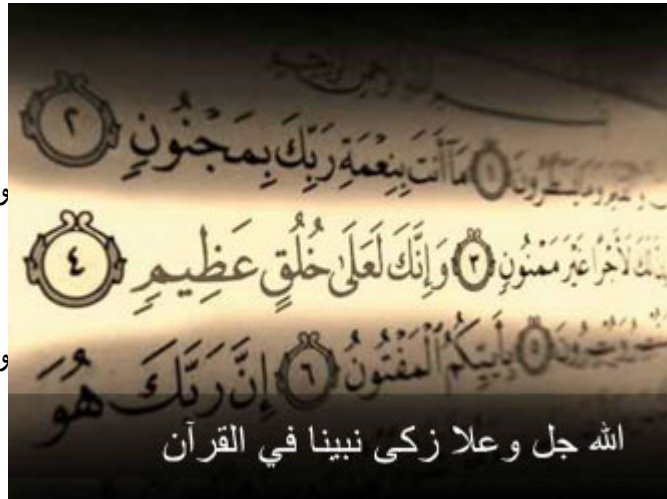 مَا أَنتَ بِنِعْمَةِ رَبِّكَ بِمَجْنُونٍ ٢
لَأَجْرًا غَيْرَ مَمْنُونٍ ٣ وَإِنَّكَ لَعَلَىٰ خُلُقٍ عَظِيمٍ ٤
بِأَييِّكُمُ الْمَفْتُونُ ٦ إِنَّ رَبَّكَ هُوَ
الله جل وعلا زكى نبينا في القرآن